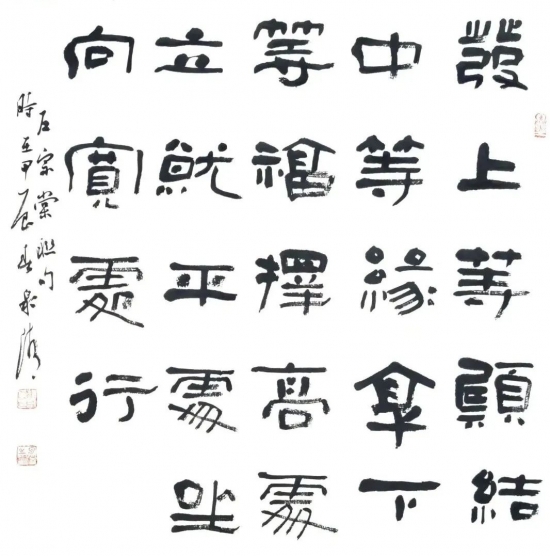 發上等願結
中等緣享下
等福擇高處
立就平處坐
向寬處行
左宗棠聯句
時在甲辰春